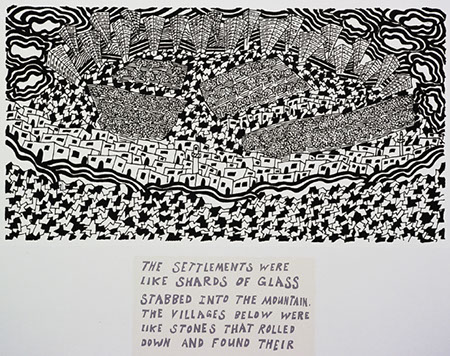 THE SETTLEMENTS WERE
LIKE SHARDS OF GLASS
STABBED INTO THE MOUNTAIN.
THE VILLAGES BELOW WERE
LIKE STONES THAT ROLLED
DOWN AND FOUND THEIR